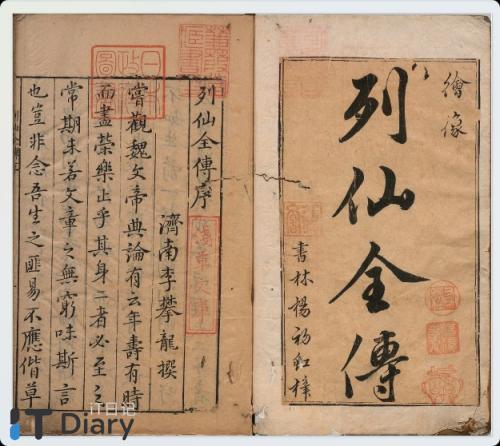 繪像
列仙全傳
書林楊初紅梓
列仙全傳序
濟南李攀龍撰
嘗觀魏文帝典論有云年壽有時
而盡榮樂止乎其身二者必至之
常期未若文章之無窮味斯言
也豈非念吾生之匪易不應偕草
IT日记
IT Diary